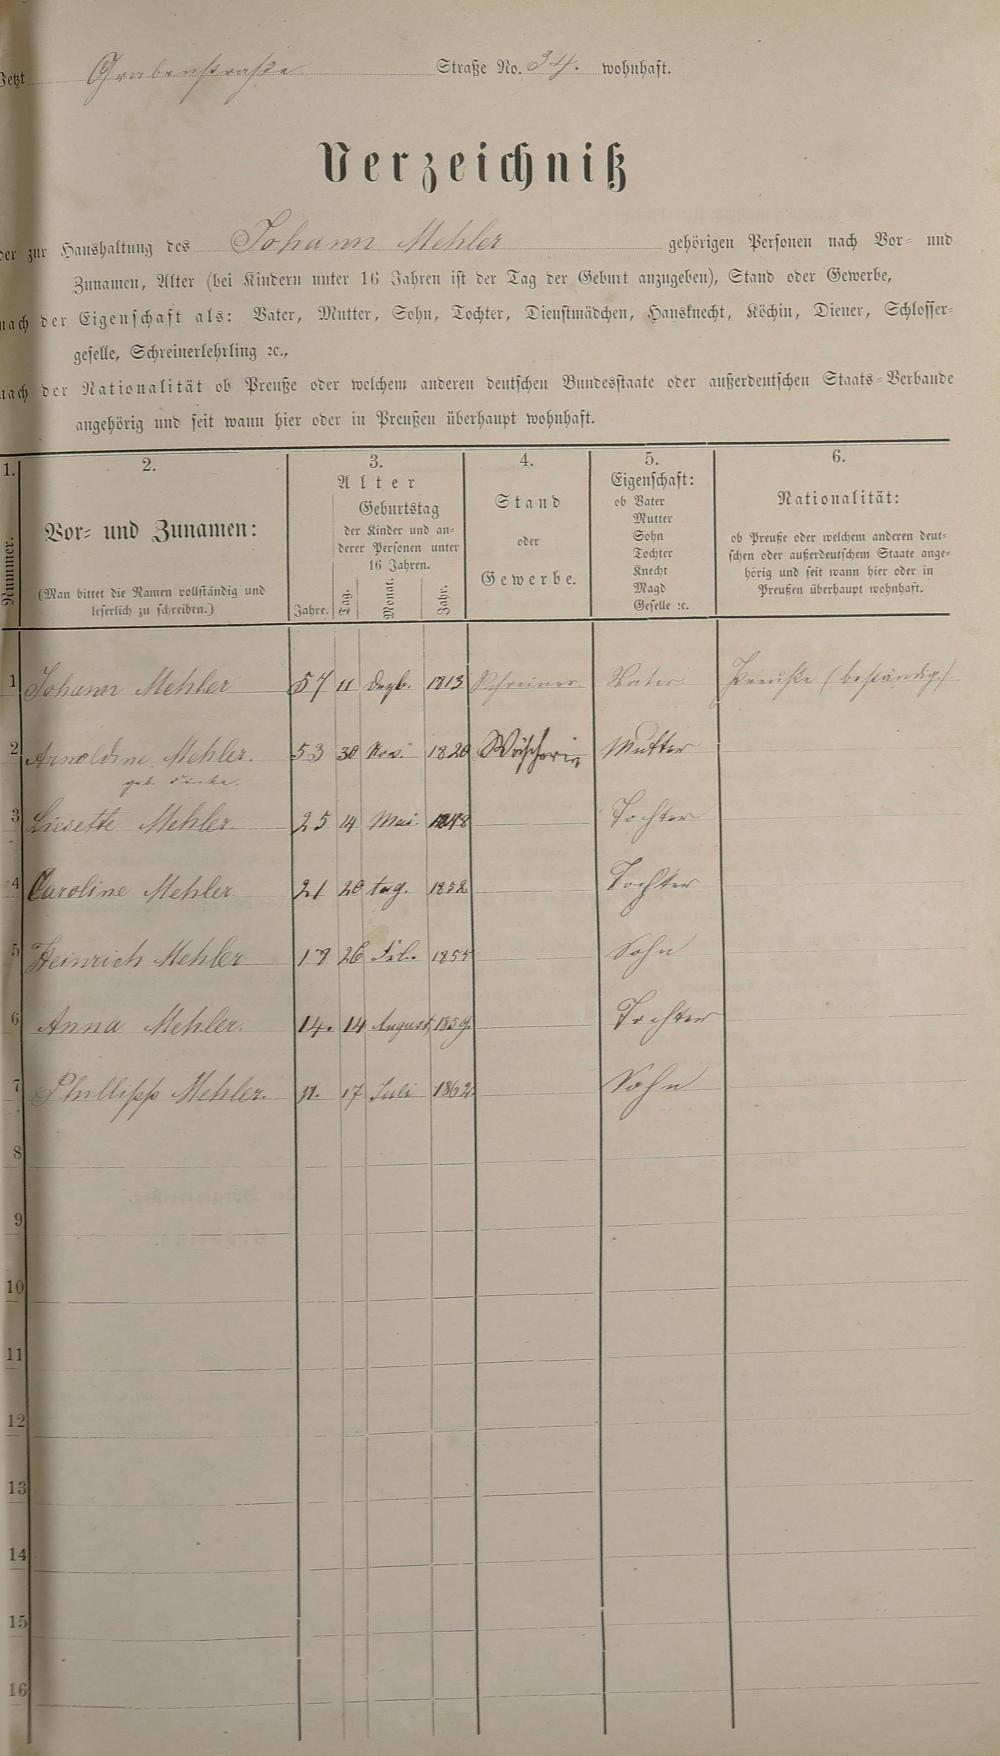 Jetzt Grabenstraße Straße No. 34. wohnhaft.
Verzeichniß
der zur Haushaltung des Johann Mehler gehörigen Personen nach Vor- und
Zunamen, Alter (bei Kindern unter 16 Jahren ist der Tag der Geburt anzugeben), Stand oder Gewerbe,
nach der Eigenschaft als: Vater, Mutter, Sohn, Tochter, Dienstmädchen, Hausknecht, Köchin, Diener, Schlosser-
geselle, Schreinerlehrling ꝛc.,
nach der Nationalität ob Preuße oder welchem anderen deutschen Bundesstaate oder außerdeutschen Staats-Verbande
angehörig und seit wann hier oder in Preußen überhaupt wohnhaft.
1.
Nummer.
2.
Vor- und Zunamen:
(Man bittet die Namen vollständig und
leserlich zu schreiben.)
3.
Alter
Geburtstag
der Kinder und an-
derer Personen unter
16 Jahren.
Jahre. Tag. Monat. Jahr.
4.
Stand
oder
Gewerbe.
5.
Eigenschaft:
ob Vater
Mutter
Sohn
Tochter
Knecht
Magd
Geselle ꝛc.
6.
Nationalität:
ob Preuße oder welchem anderen deut-
schen oder außerdeutschem Staate ange-
hörig und seit wann hier oder in
Preußen überhaupt wohnhaft.
1 Johann Mehler 57 11 Dezb. 1813 Schreiner Vater Preuße (beständig)
2 Arnoldine Mehler. 53 30 Nov. 1820 Wäscherin Mutter
geb.
3 Liesette Mehler. 25 14 Mai 1848 Tochter
4 Caroline Mehler. 21 20 1852 Tochter
5 Heinrich Mehler 18 26 1855 Sohn
6 Anna Mehler. 14. 14 August 1859. Tochter
7 Phillipp Mehler. 11. 17 Juli 1862 Sohn
8
9
10
11
12
13
14
15
16